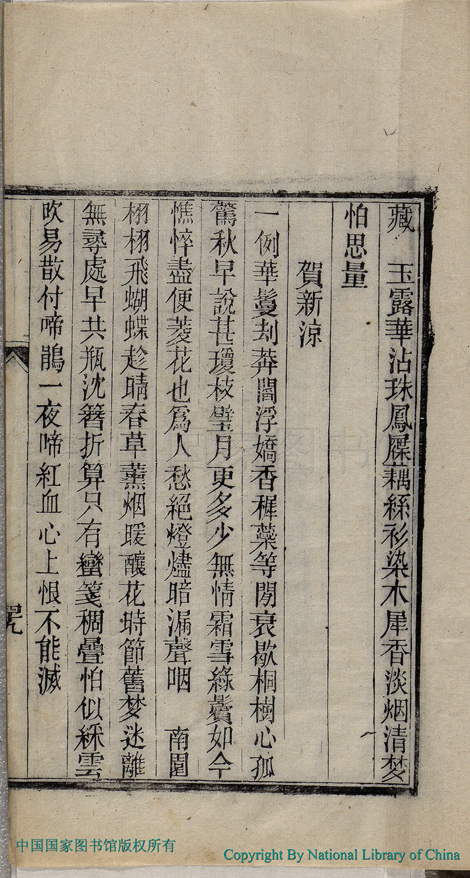 藏　玉露華沾珠鳳屧藕絲衫染木犀香淡烟清梦
怕思量
賀新涼
一例華鬘刦莽閻浮嬌香穉蘂等閒衰歇桐樹心孤
驚秋早說甚瓊枝璧月更多少無情霜雪綠鬢如今
憔悴盡便菱花也爲人愁絕燈燼暗漏聲咽　南園
栩栩飛蝴蝶趁晴春草薰烟暖釀花時節舊梦迷離
無尋處早共瓶沈簪折算只有蠻箋稠疊怕似綵雲
吹易散付啼鵑一夜啼紅血心上恨不能滅
中国国家图书馆版权所有
Copyright By National Library of China